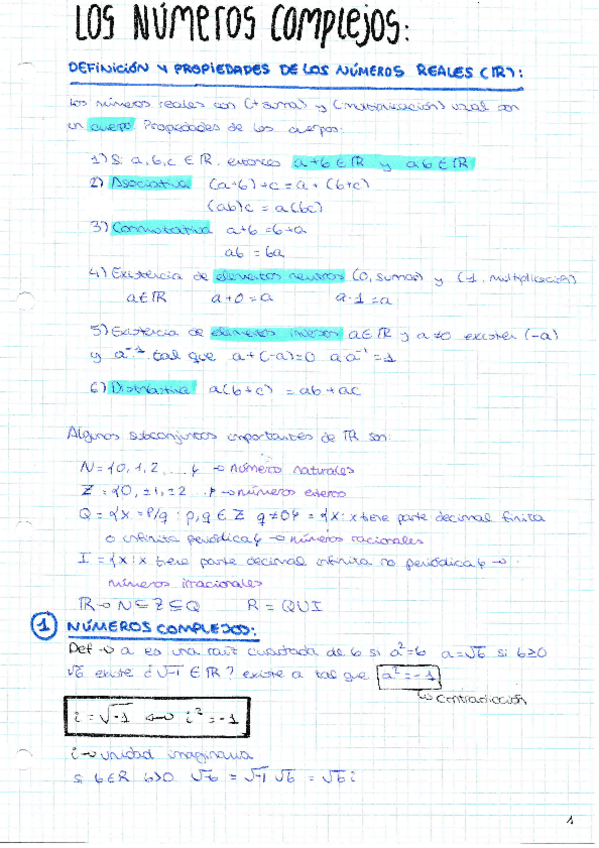 LOS NÚMEROS COMPLEJOS:
DEFINICIÓN Y PROPIEDADES DE LOS NÚMEROS REALES (IR):
Los números reales con (+suma) y (·multiplicación) usual son
un cuerpo. Propiedades de los cuerpos:
1) Si a,b,c ∈ IR. entonces a+b ∈ IR y ab ∈ IR
2) Asociativa (a+b)+c = a+(b+c)
(ab)c = a(bc)
3) Conmutativa a+b = b+a
ab = ba
4) Existencia de elementos neutros (0, suma) y (1, multiplicación)
a ∈ IR a+0=a a·1=a
5) Existencia de elementos inversos a ∈ IR y a≠0 existen (-a)
y a⁻¹ tal que a+(-a)=0 a a⁻¹=1
6) Distributiva a(b+c) = ab+ac
Algunos subconjuntos importantes de IR son:
N = {0,1,2,...} → números naturales
Z = {0,±1,±2...} → números enteros
Q = {x = p/q : p,q ∈ Z q≠0} = {x : x tiene parte decimal finita
o infinita periódica} → números racionales
I = {x : x tiene parte decimal infinita no periódica} → :
números irracionales
IR → N ⊆ Z ⊆ Q R = Q U I
1 NÚMEROS COMPLEJOS:
Def → a es una raíz cuadrada de b si a²=b a=√b si b≥0
√b existe ¿√-1 ∈ IR? existe a tal que a²=-1
↳ Contradicción
i = √-1 ↔ i² = -1
i → unidad imaginaria
si b ∈ R b>0 √-b = √-1 √b = √b i
1